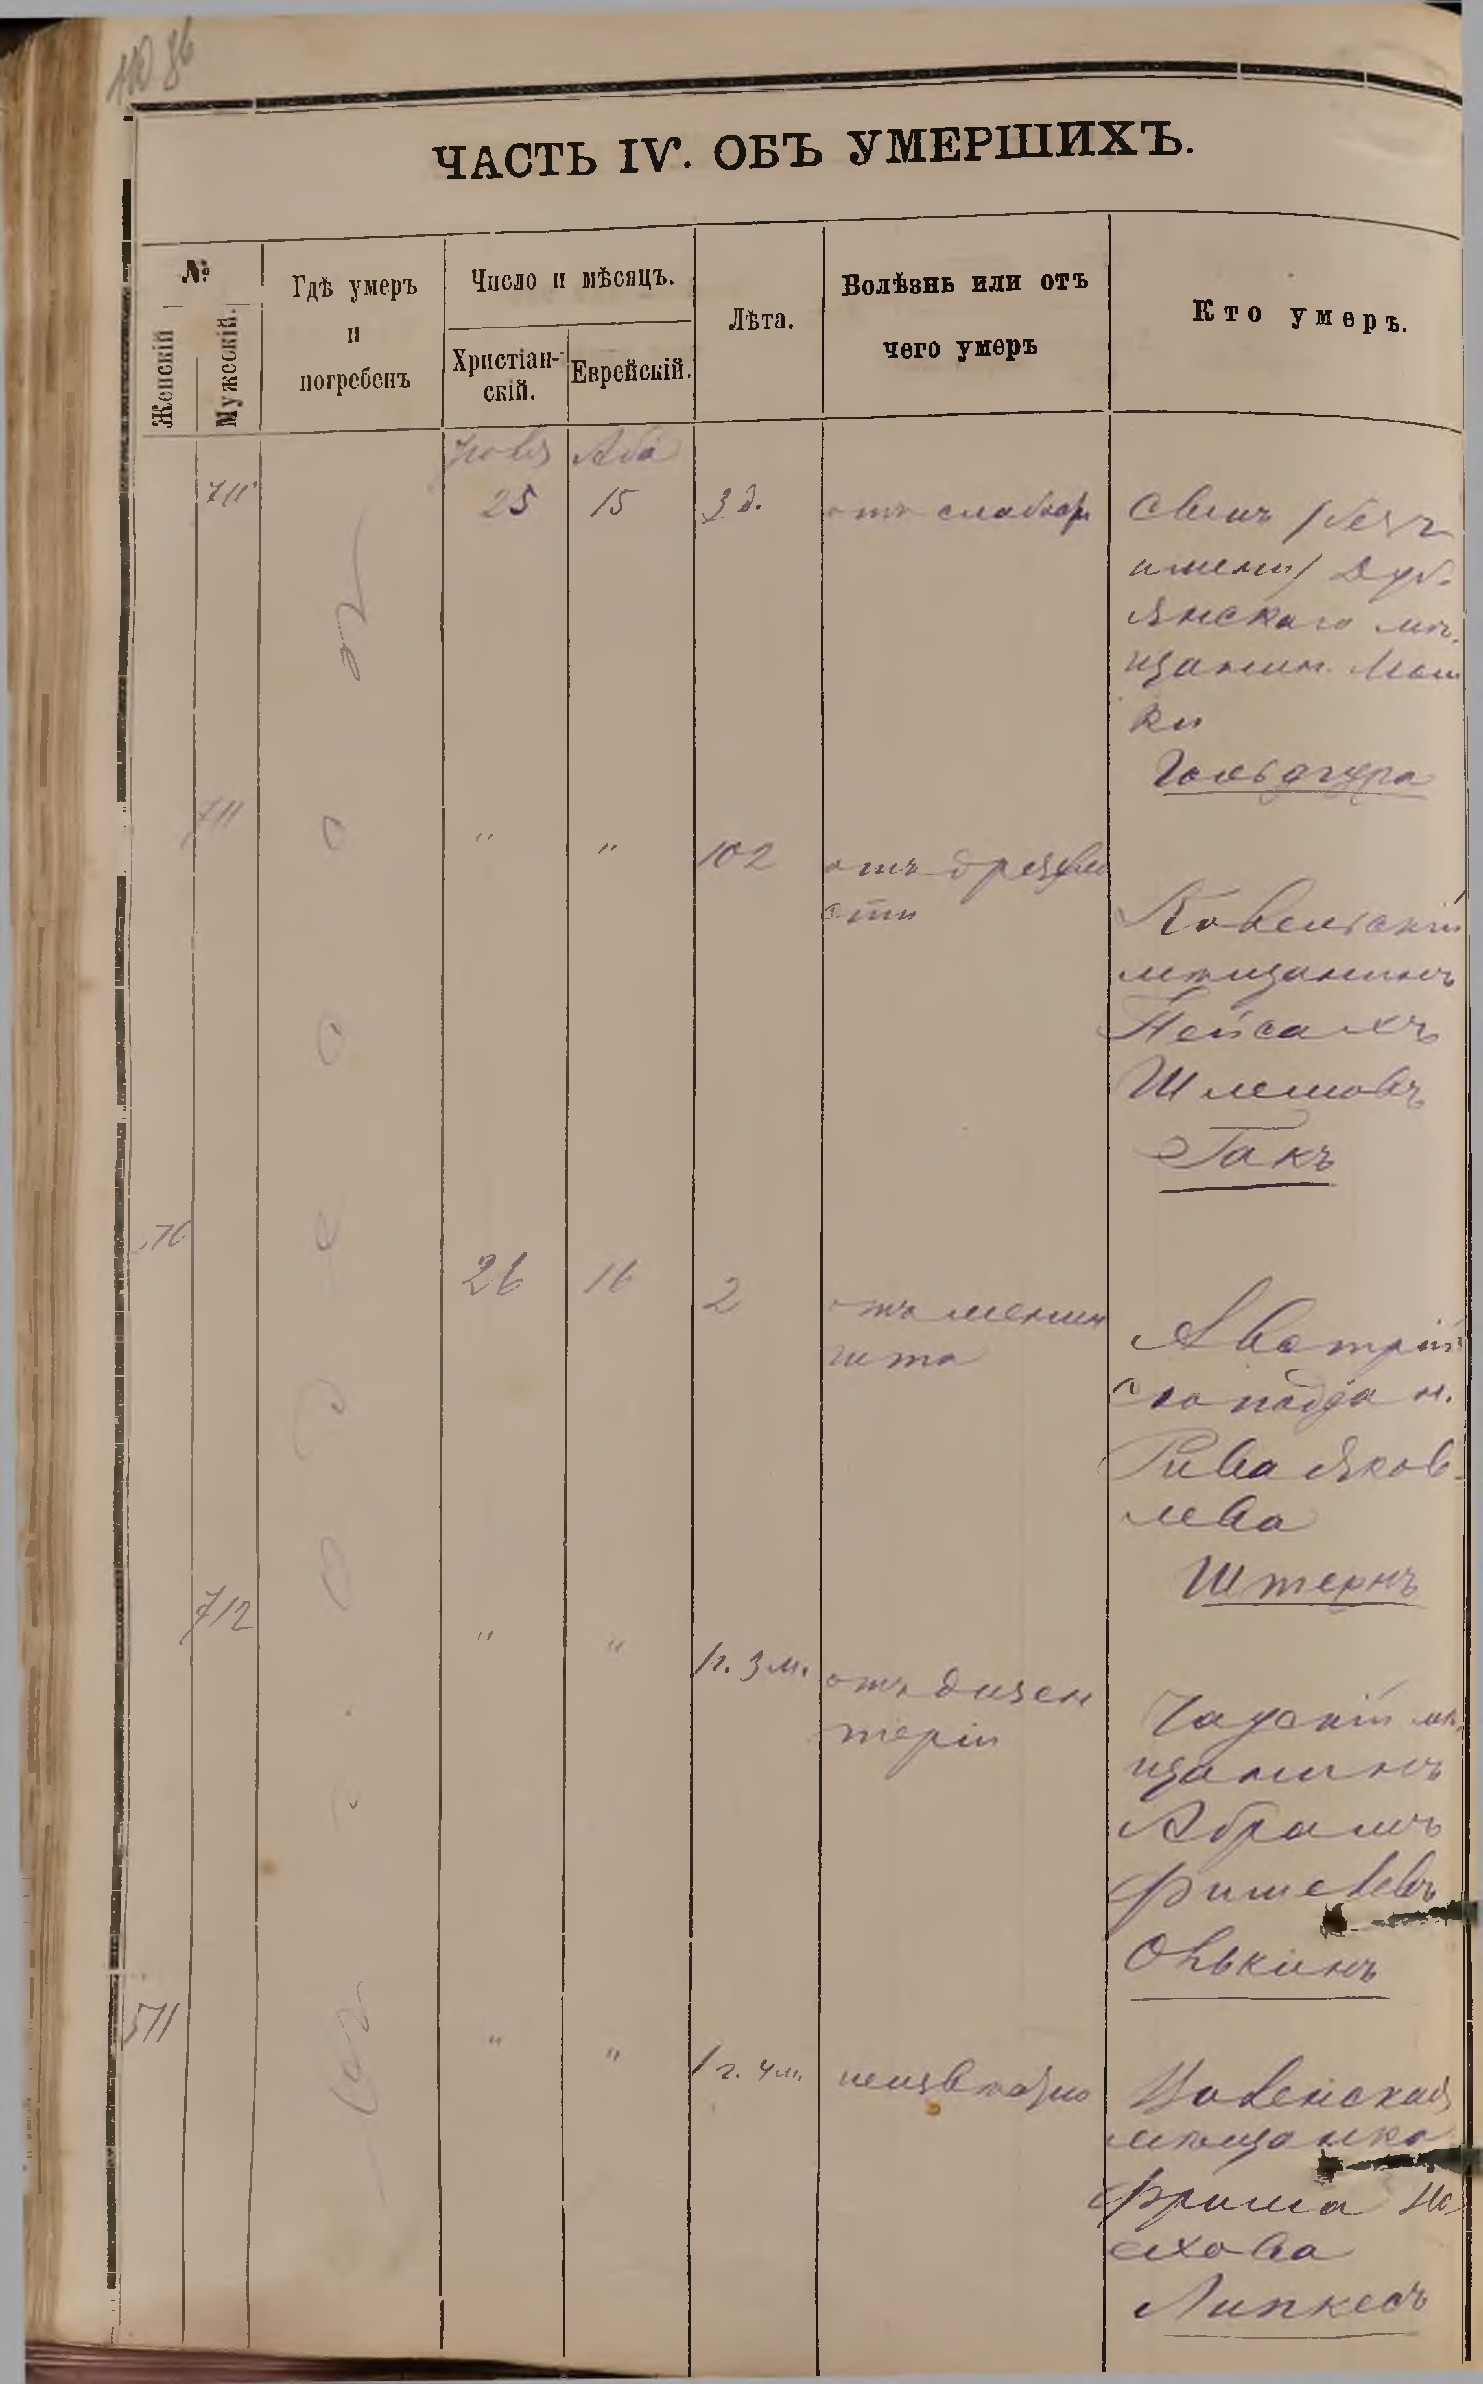 ЧАСТЬ IV. ОБЪ УМЕРШИХЪ.
№
Женскій
Мужескій.
Гдѣ умеръ
и
погребенъ
Число и мѣсяцъ.
Христіан-
скій.
Еврейскій.
Лѣта.
Болѣзнь или отъ
чего умеръ
Кто умеръ.
Аба
711
25
15
3 д.
отъ слабости
Сынъ /безъ
имени/ Дуб-
янскаго мѣ-
щанин. Мош
ки
Гольдгура
711
"
"
102
отъ дряхло
сти
Ковельскій
мѣщанинъ
Пейсахъ
Шлемовъ
Гакъ
26
16
2
отъ менин
гита
Австрій
ско поддан.
Рива Яков-
лева
Штернъ
712
"
"
1 г. 3 м.
отъ дизен
теріи
Чаускій мѣ-
щанинъ
Абрамъ
Фишелевъ
Онькинъ
511
"
"
1 г. 4 м.
неизвѣстно
Ковенская
мѣщанка
Фрима
Липкесъ